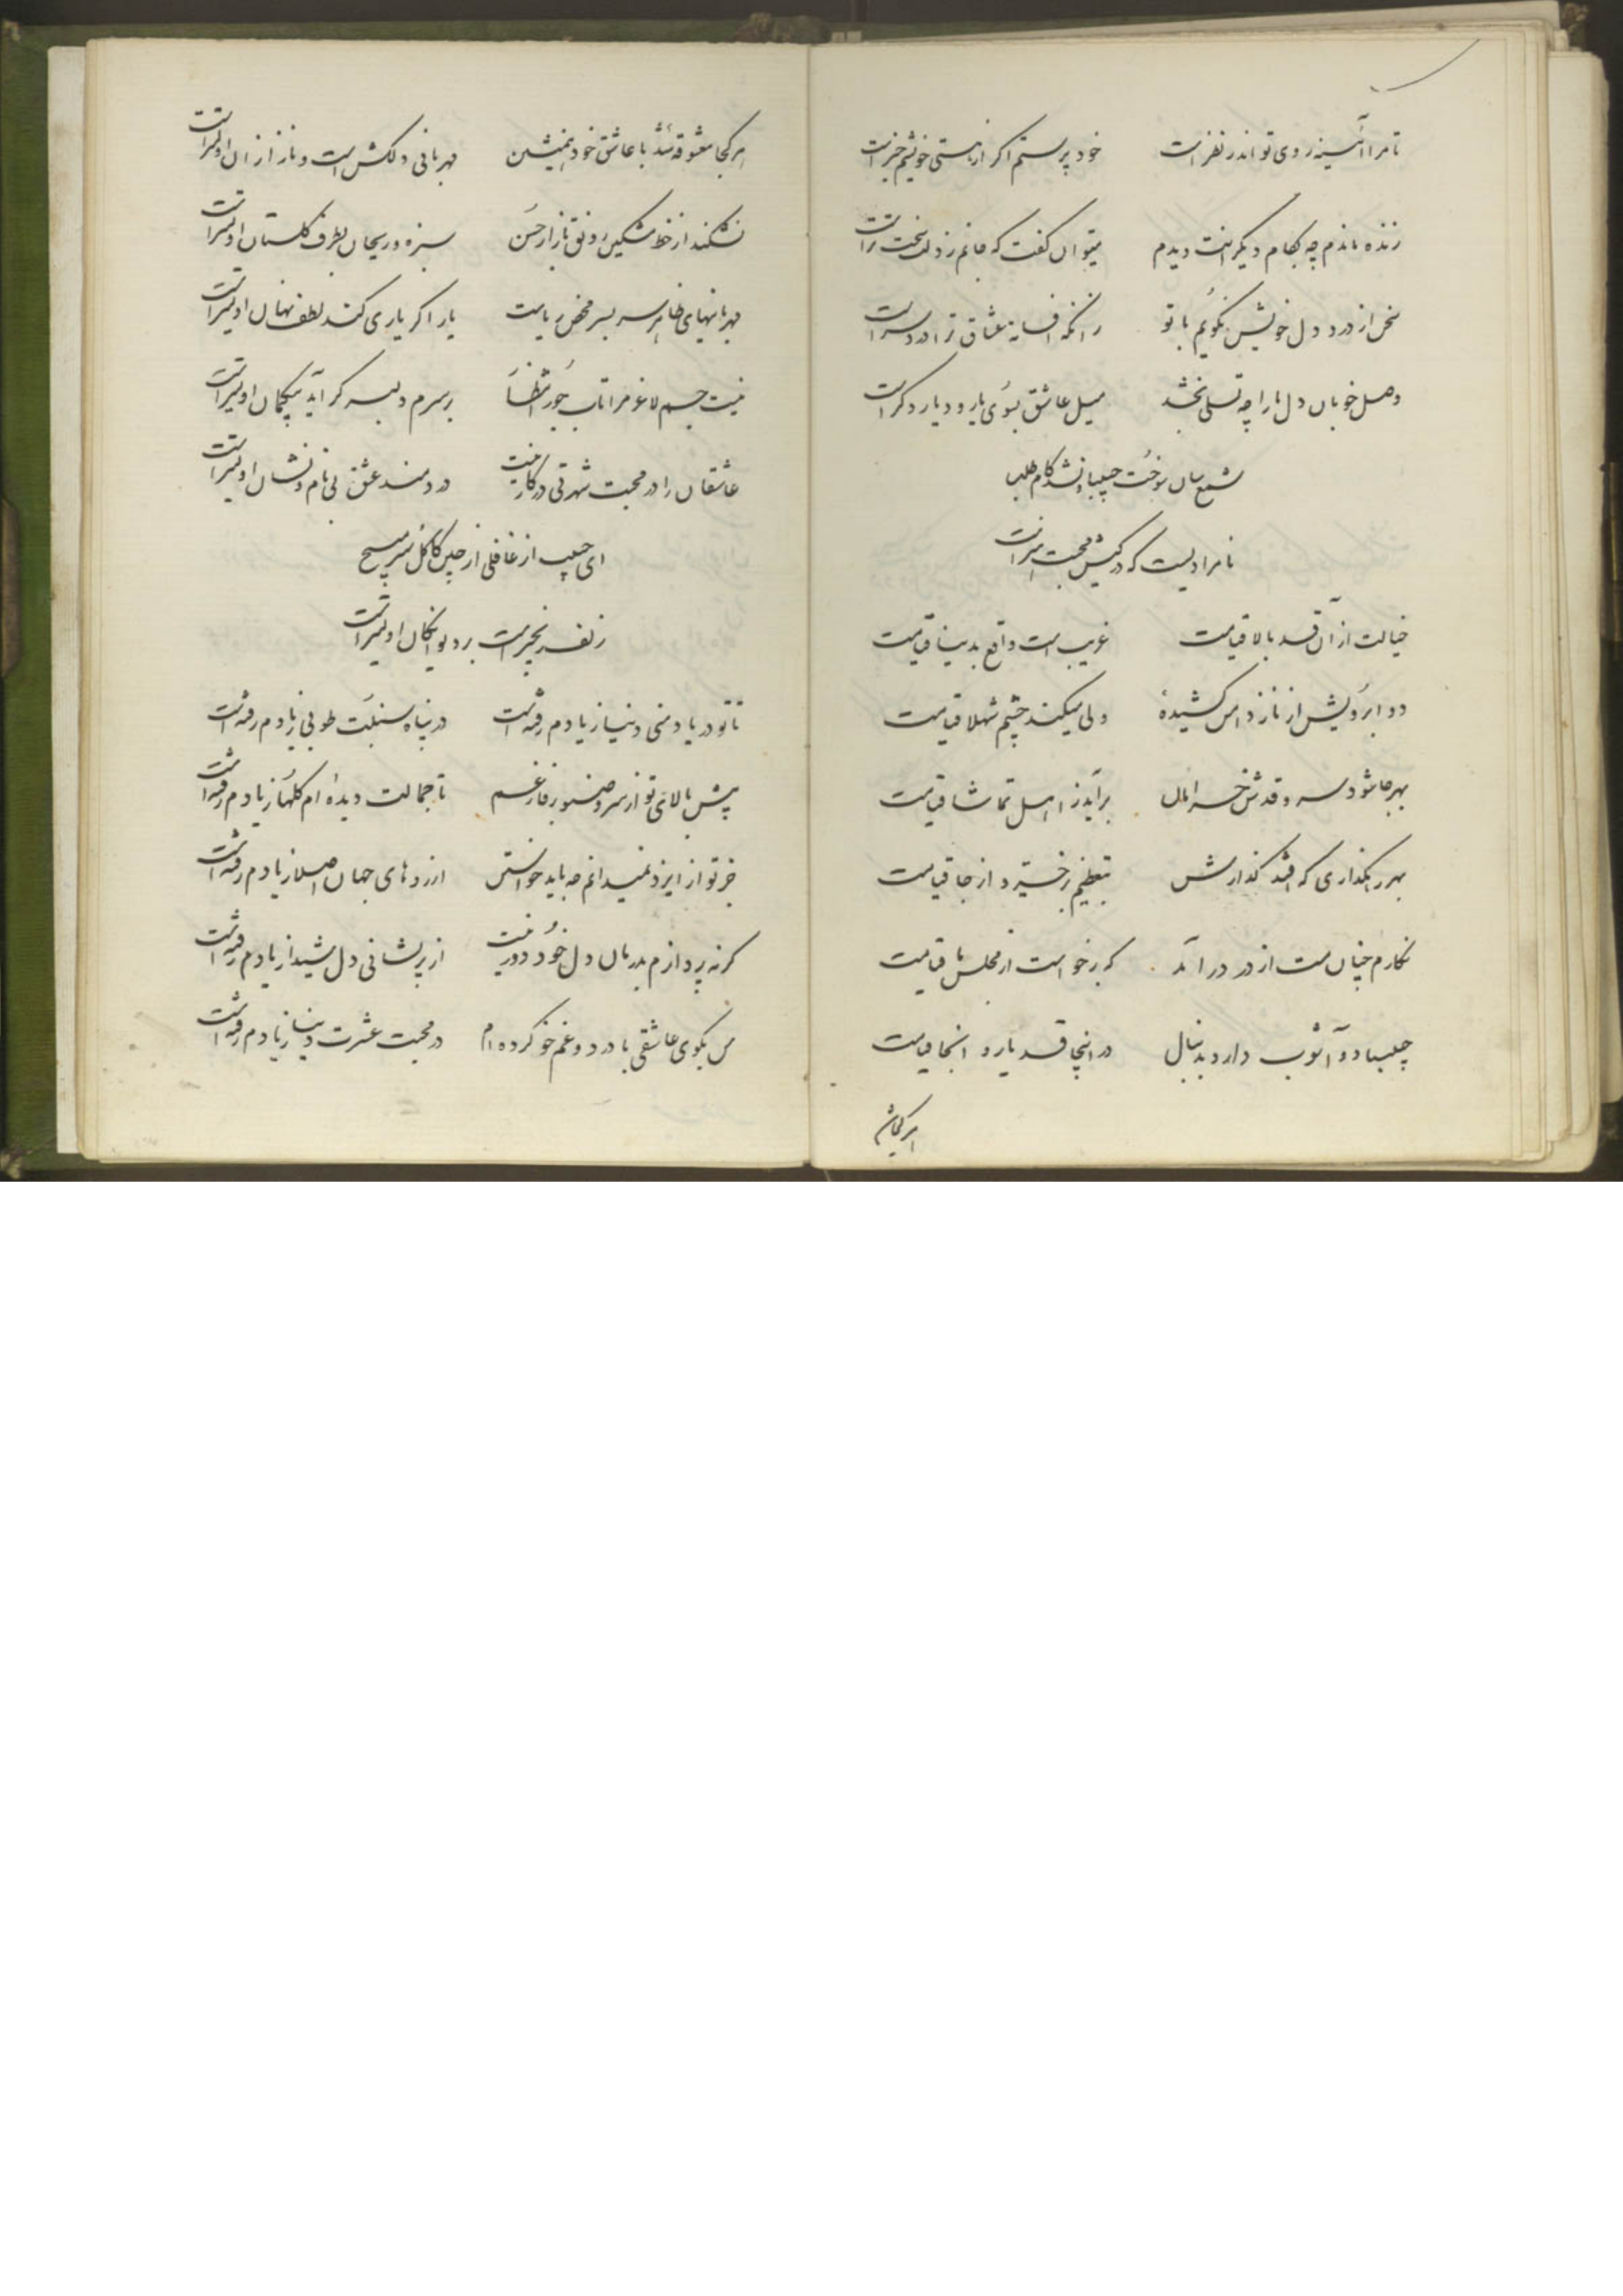 تا مرا آئینه روی تو اندر نظر است
خود پرستم اگر از هستی خویشم خبر است
زنده ماندم چه بکام دیگرانت دیدم
میتوان گفت که جانم ز دلت سخت تر است
سخن از درد دل خویش نگویم با تو
زانکه افسانه عشاق ترا درد سر است
وصل خوبان دل ما را چه تسلی بخشد
میل عاشق بسوی یار و دیار دگر است
شمع سان سوخت چلیپا و نشد کام طلب
نامرادیست که در کیش محبت
خیالت از آن قد بالا قیامت
غریب است واقع بدنیا قیامت
دو ابرویش از ناز دامن کشیدهٔ
ولی میکند چشم شهلا قیامت
بهر جا شود سرو قدش خرامان
برآید ز اهل تماشا قیامت
بهر رهگذاری که افتد گذارش
بتعظیم برخیزد از جا قیامت
نگارم چنان مست از در درآمد
که برخواست از مجلس ما قیامت
چلیپا دو آشوب دارد بدنبال
در اینجا قد یار و آنجا قیامت
هر کجا معشوقه شد با عاشق خود همنشین
مهربانی دلکش است و ناز از آن اولیتر است
نشکند از خط مشکین رونق بازار حسن
سبزه و ریحان بطرف گلستان اولیتر است
مهربانیهای ظاهر سر بسر محض ریاست
یار اگر یاری کند لطف نهان اولیتر است
نیست جسم لاغر مرا تاب جور انتظار
بر سرم دلبر گر آید بیگمان اولیتر است
عاشقان را در محبت شهرتی در کار نیست
دردمند عشق بی نام و نشان اولیتر است
ای چلیپا از غافلی از چین کاکل سر مپیچ
زلف زنجیر است بر دیوانگان اولیتر است
تا تو در یاد منی دنیا ز یادم رفته است
در پناه سنبلت طوبی ز یادم رفته است
پیش بالای تو از سرو و صنوبر فارغم
تا جمالت دیده ام گلها ز یادم رفته است
جز تو از ایزد نمیدانم چه باید خواستن
آرزوهای جهان اصلا ز یادم رفته است
گر نپردازم بدرمان دل خود دور نیست
از پریشانی دل شیدا ز یادم رفته است
من بکوی عاشقی با درد و غم خو کرده ام
در محبت عشرت دنیا ز یادم رفته است